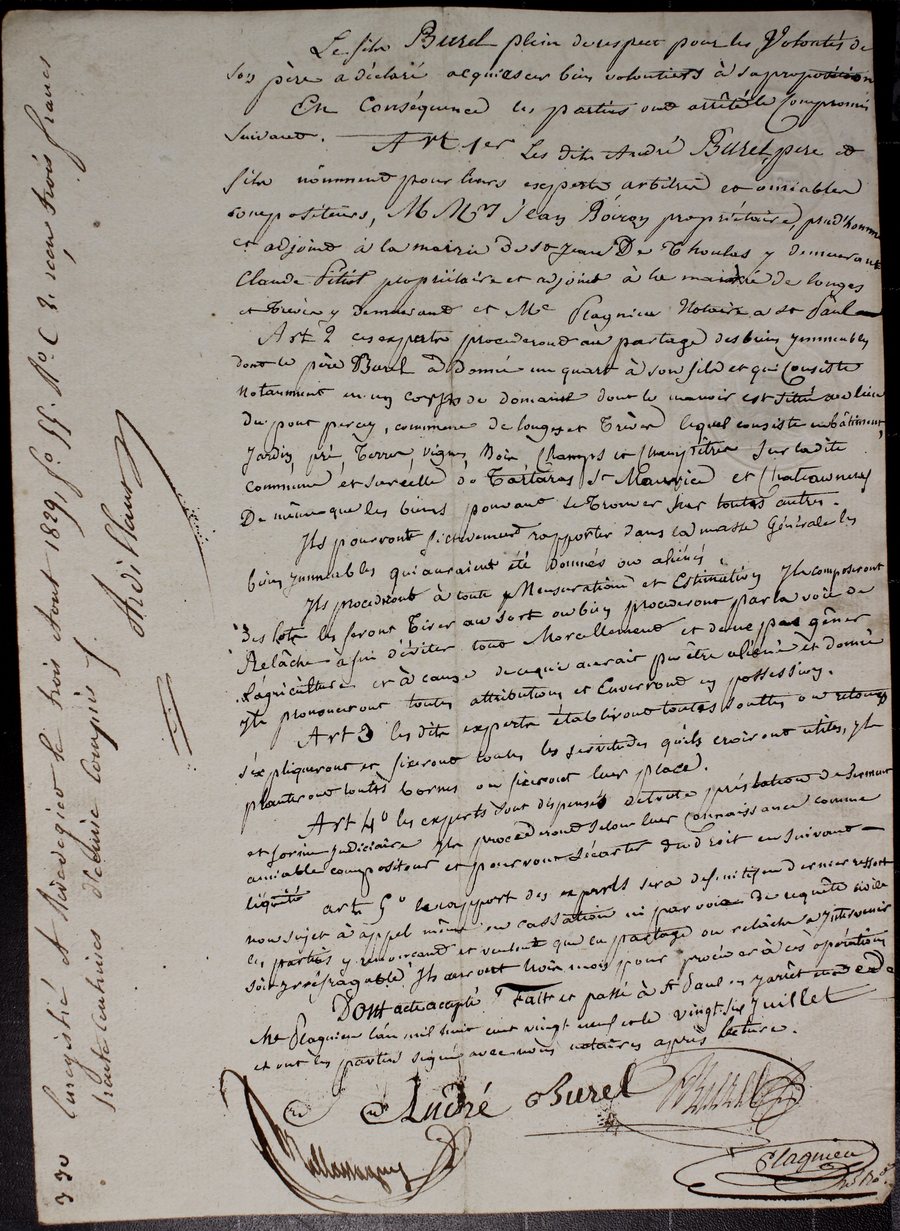 Le fils Burel plein de respect pour les Volontés de
son père a déclaré acquiescer bien volontiers à sa proposition
En Conséquence les parties ont arrêté le Compromis
suivant.
Art. 1er Les dits André Burel, pere et
fils nomment pour leurs experts arbitres et amiables
compositeurs, MMrs Jean Boiron propriétaire, prud'homme
et adjoint à la mairie de St Jean De Thoulas y demeurant
Claude propriétaire et adjoint à la mairie de longes
et Trèves y demeurant et Me Plagnieu Notaire a St Paul
Art 2 ces experts procederont au partage des biens ymmeubles
dont le père Burel a Donné un quart à son fils et qui Consiste
notamment en un corps de domaine dont le manoir est situé au lieu
du pont percey, commune de longes et Trèves lequel consiste en bâtiments,
jardin, pré, Terres, vignes, Bois Champs et Champêtres Sur ladite
commune, et sur celle de Tartaras St Maurice et Chateauneuf
De même que les biens pouvant se trouver sur toutes autres.
Ils pourront fictivement rapporter dans la masse Générale les
biens ymmeubles qui auraient été donnés ou aliénés.
Ils procederont à toute Mensuration et Estimation Ils composeront
des lots les feront Tirer au sort ou bien procederont par la voie de
Relâche à fin d'éviter tout Morcellement et de ne pas gêner
l'agriculture et à cause de ce qui aurait pu être aliéné et donné
Ils prononceront toutes attributions et Enverront en possession.
Art 3 les dits experts établiront toutes soultes ou retours
expliqueront et fixeront toutes les servitudes qu'ils croiront utiles, Ils
planteront toutes bornes ou fixeront leur place.
Art 4o les experts sont dispensés de toute préstation de serment
et forme judiciaire Ils procederont selon leur Connaissance comme
amiable compositeur et pourront s'écarter du droit en suivant
l'équité
art. 5o le rapport des experts sera definitif en dernier ressort
non sujet à appel même en cassation ni par voie de requête civile
les parties y renoncant et veulent que ce partage ou relâche a Intervenir
soit irréfragable. Ils auront trois mois pour procéder à ces opérations
Dont acte accepté. Fait et passé à St Paul en Jarêt étude de
Me Plagnieu l'an mil huit cent vingt neuf et le vingt six juillet
et ont les parties signé avec nous notaires après lecture.
André Burel Burel
Plagnieu
330 Enregistré A Rivedegier le trois Aout 1829, fo 55. Ro C 3. reçu trois francs
trente centimes décime compris